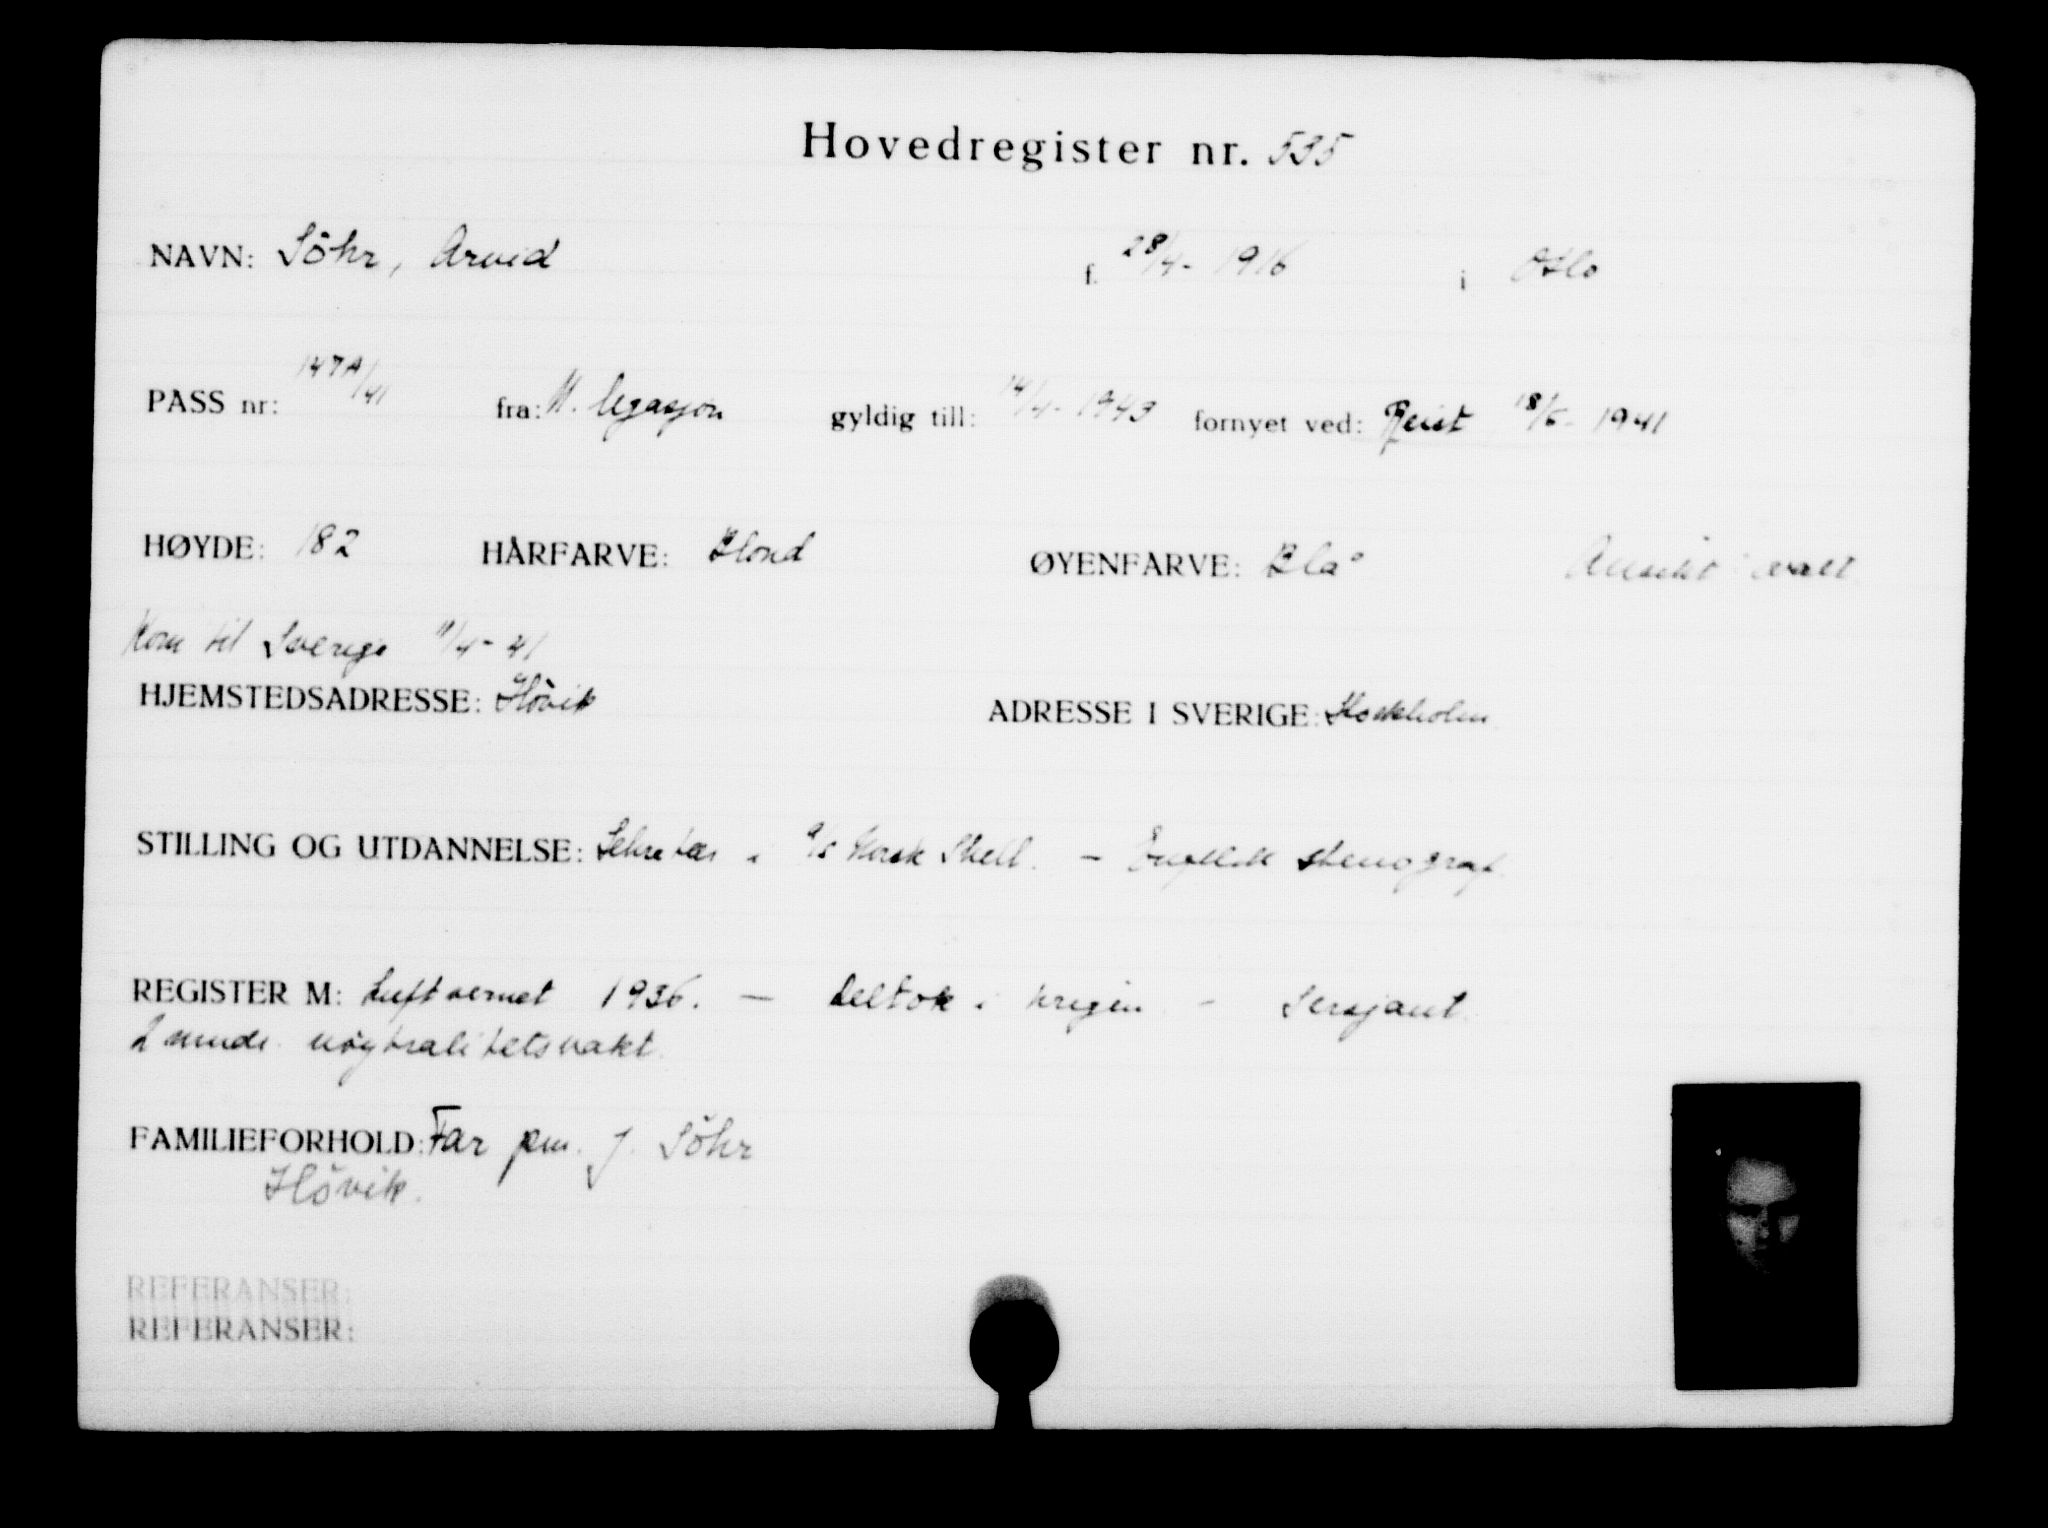 Hovedregister nr. 535
NAVN: Söhr, Arvid f. 28/4- 1916 i Oslo
PASS nr: 147A/41 fra: N. legasjon gyldig till: 14/4- 1943 fornyet ved: Reist 18/6- 1941
HØYDE: 182 HÅRFARVE: Blond ØYENFARVE: Blå Ansikt: ovalt
Kom til Sverige 11/4- 41
HJEMSTEDSADRESSE: Hövik ADRESSE I SVERIGE: Stockholm
STILLING OG UTDANNELSE: Sekretær i A/s Norsk Shell. - Engelsk stenograf.
REGISTER M: Luftvernet 1936. - Deltok i krigen - Sersjant.
2 mndr. nøytralitetsvakt.
FAMILIEFORHOLD: Far J. Söhr
Hövik.
REFERANSER:
REFERANSER: